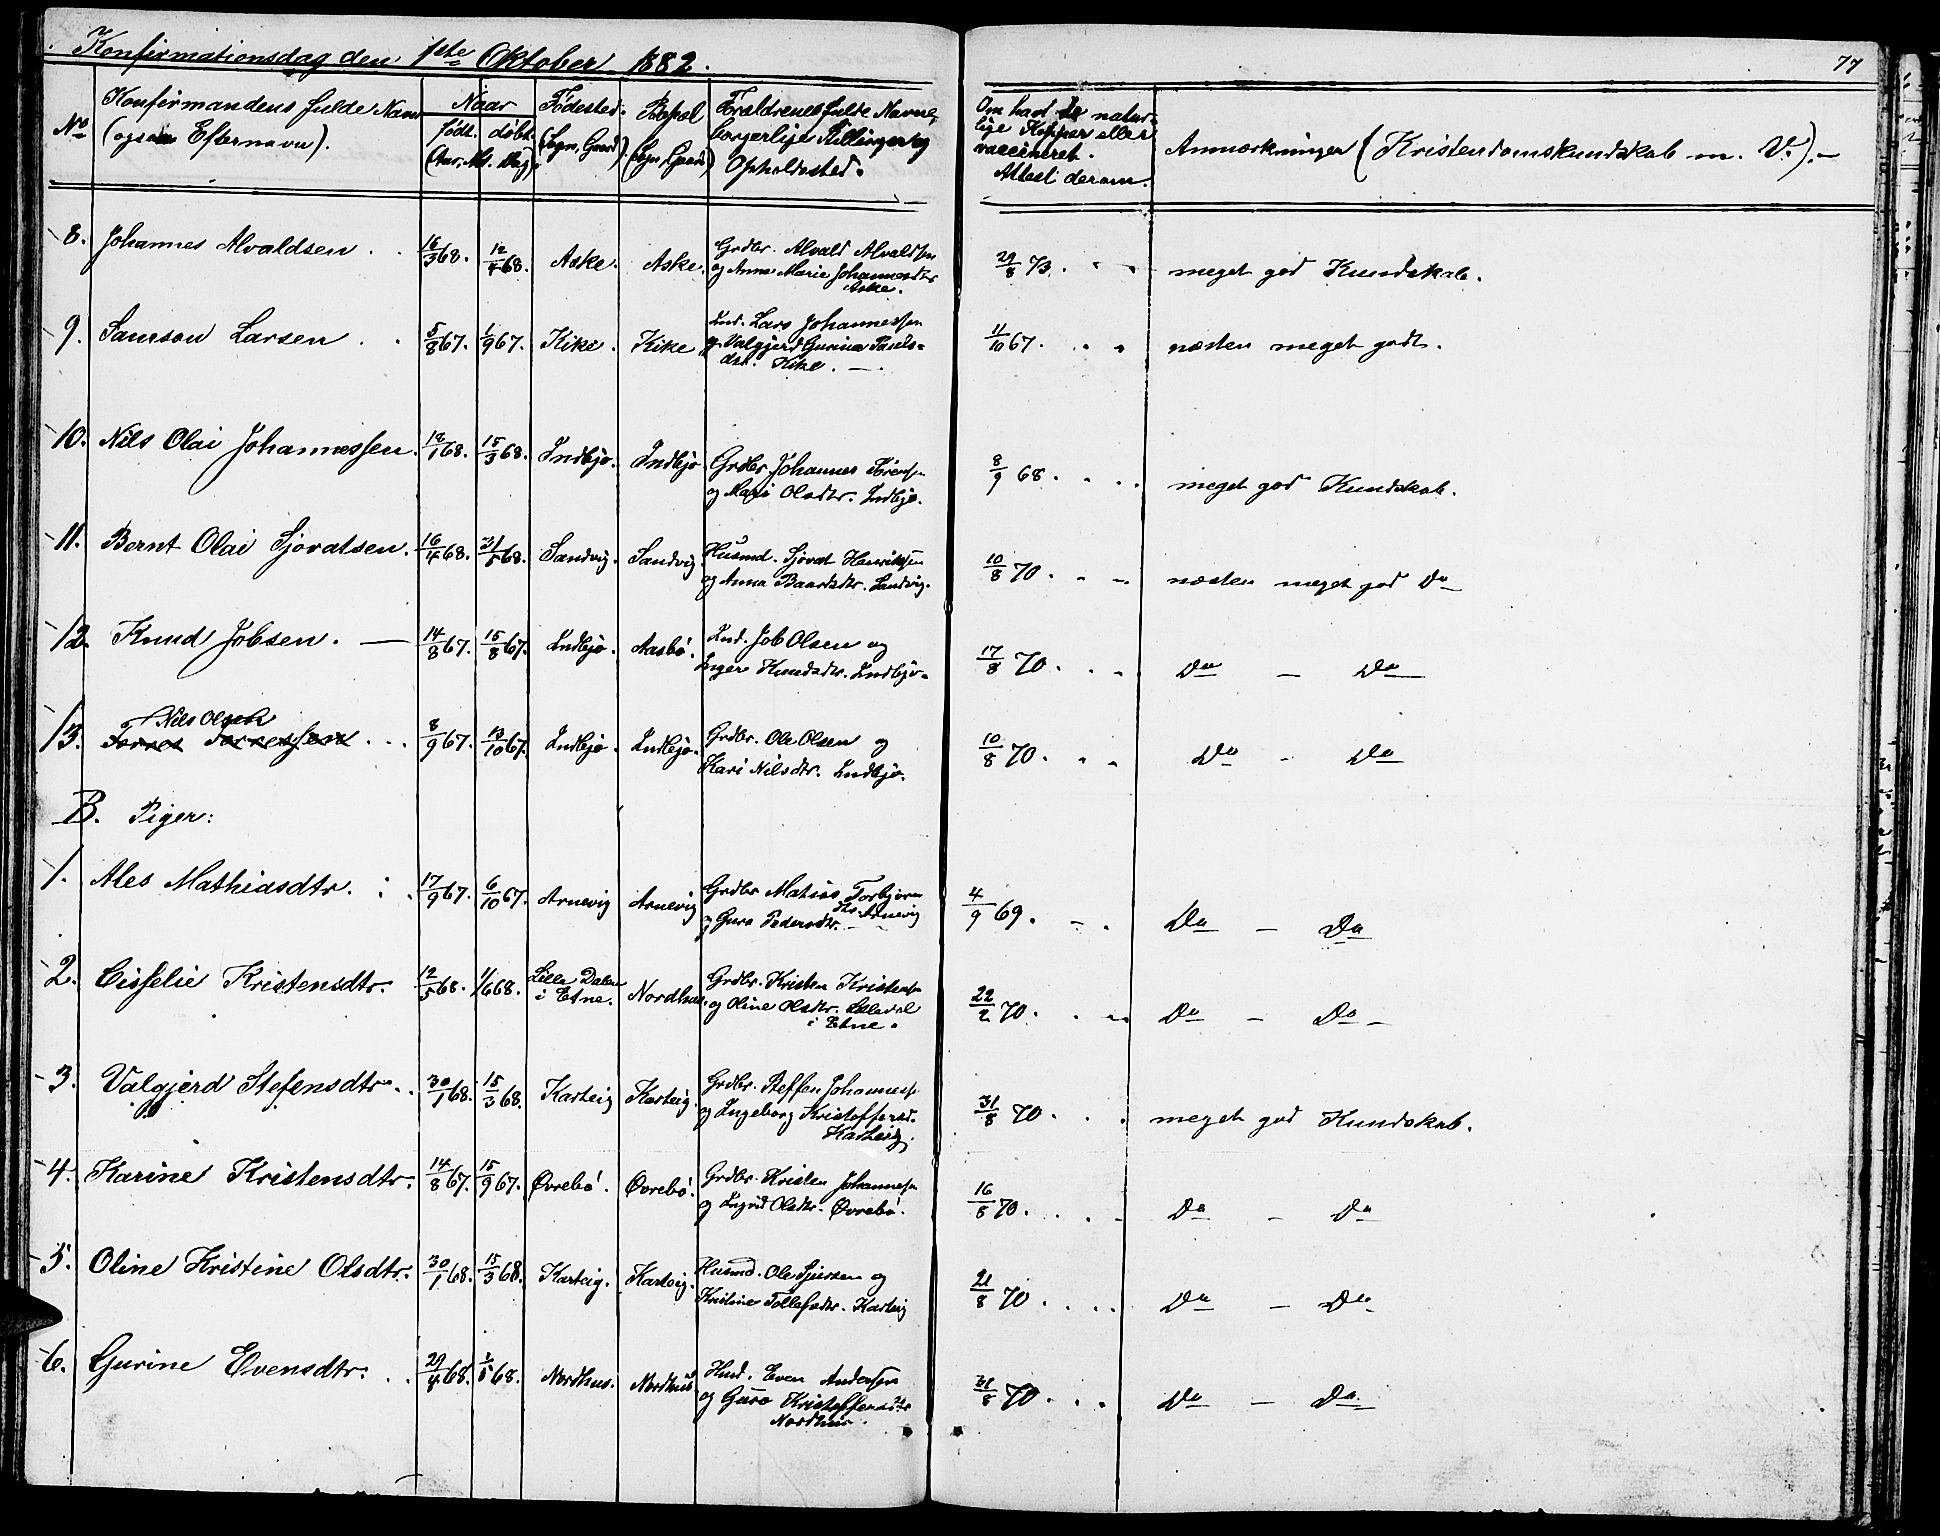 Konfirmationsdag den 1ste Oktober 1882.
77
No
Konfirmandens fulde Navn
(ogsaa Efternavn).
Naar
født. døbt.
(Aar. M. Dag).
Fødested.
(Sogn, Gaard).
Bopæl
(Sogn, Gaard)
Forældrenes fulde Navne,
borgerlige Stillinger og
Opholdssted.
Om havt de natur-
lige Kopper eller
vaccineret.
Attest derom.
Anmærkninger (Kristendomskundskab m. V.).
8. Johannes Alvaldsen 16/3 68. 12/4 68. Aske. Aske. Grdbr. Alvald Alvaldsen
og Anna Marie Johannesdtr
Aske.
29/8 73. meget god Kundskab.
9. Samson Larsen 5/8 67. 1/9 67. Kike. Kike Ind. Lars Johannessen
og Valgjerd Gurine Pauls-
dtr. Kike.
11/10 67. næsten meget godt.
10. Nils Olai Johannessen. 18/1 68. 15/3 68. Indbjo. Indbjo Grdbr. Johannes
og Mari Olsdtr. Indbjo.
8/9 68. meget god Kundskab.
11. Bernt Olai Sjovatsen. 16/4 68. 31/5 68. Sandvig. Sandvig. Husmd. Sjovat Henriksen
og Anna Baardsdtr. Sandvig.
10/8 70. næsten meget god Do
12. Knud Jobsen. 14/8 67. 15/8 67. Indbjo. Aasbø. Ind. Job Olsen og
Inger Knudsdtr. Indbjo.
17/8 70. Do - Do
Nils Olsen
13. Torres Torressen 8/9 67. 13/10 67. Indbjo. Indbjo. Grdbr. Ole Olsen og
Kari Nilsdtr. Indbjo.
10/8 70. Do - Do
B. Piger:
1. Ales Mathiasdtr. 17/9 67. 6/10 67. Arnevig Arnevig Grdbr Matias Torbjørn
Arnevig
og Guro Pedersdtr.
4/9 69. Do - Do
2. Cisselie Kristensdtr. 12/5 68. 1/6 68. Lille Dalen
i Etne. Nordhus. Grdbr. Kristen Kristensen
og Oline Olsdtr. Lilledal
i Etne.
22/2 70. Do - Do -
3. Valgjerd Stefensdtr. 30/1 68. 15/3 68. Karteig Karteig. Grdbr. Steffen Johanness.
og Ingeborg Kristoffersd.
Karteig.
31/8 70. meget god Kundskab.
4. Karine Kristensdtr. 14/8 67. 15/9 67. Øvrebø. Øvrebø. Grdbr. Kristen Johannesen
og Ingrid Olsdtr. Øvrebø.
16/8 70. Do - Do
5. Oline Kristine Olsdtr. 30/1 68. 15/3 68. Karteig. Karteig. Husmd. Ole Sjursen og
Kristine Tollefsdtr. Karteig
21/8 70. Do - Do
6. Gurine Evensdtr. 29/4 68. 68. Nordhus. Nordhus Husd. Even Andersen
og Guro Kristoffersdtr
Nordhus.
31/8 70. Do - Do.